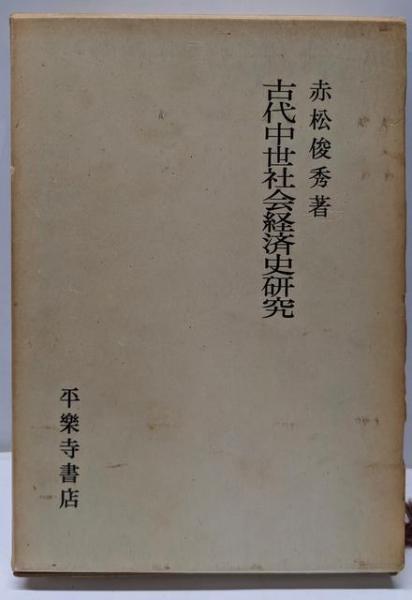 赤松俊秀著
古代中世社会経済史研究
平樂寺書店